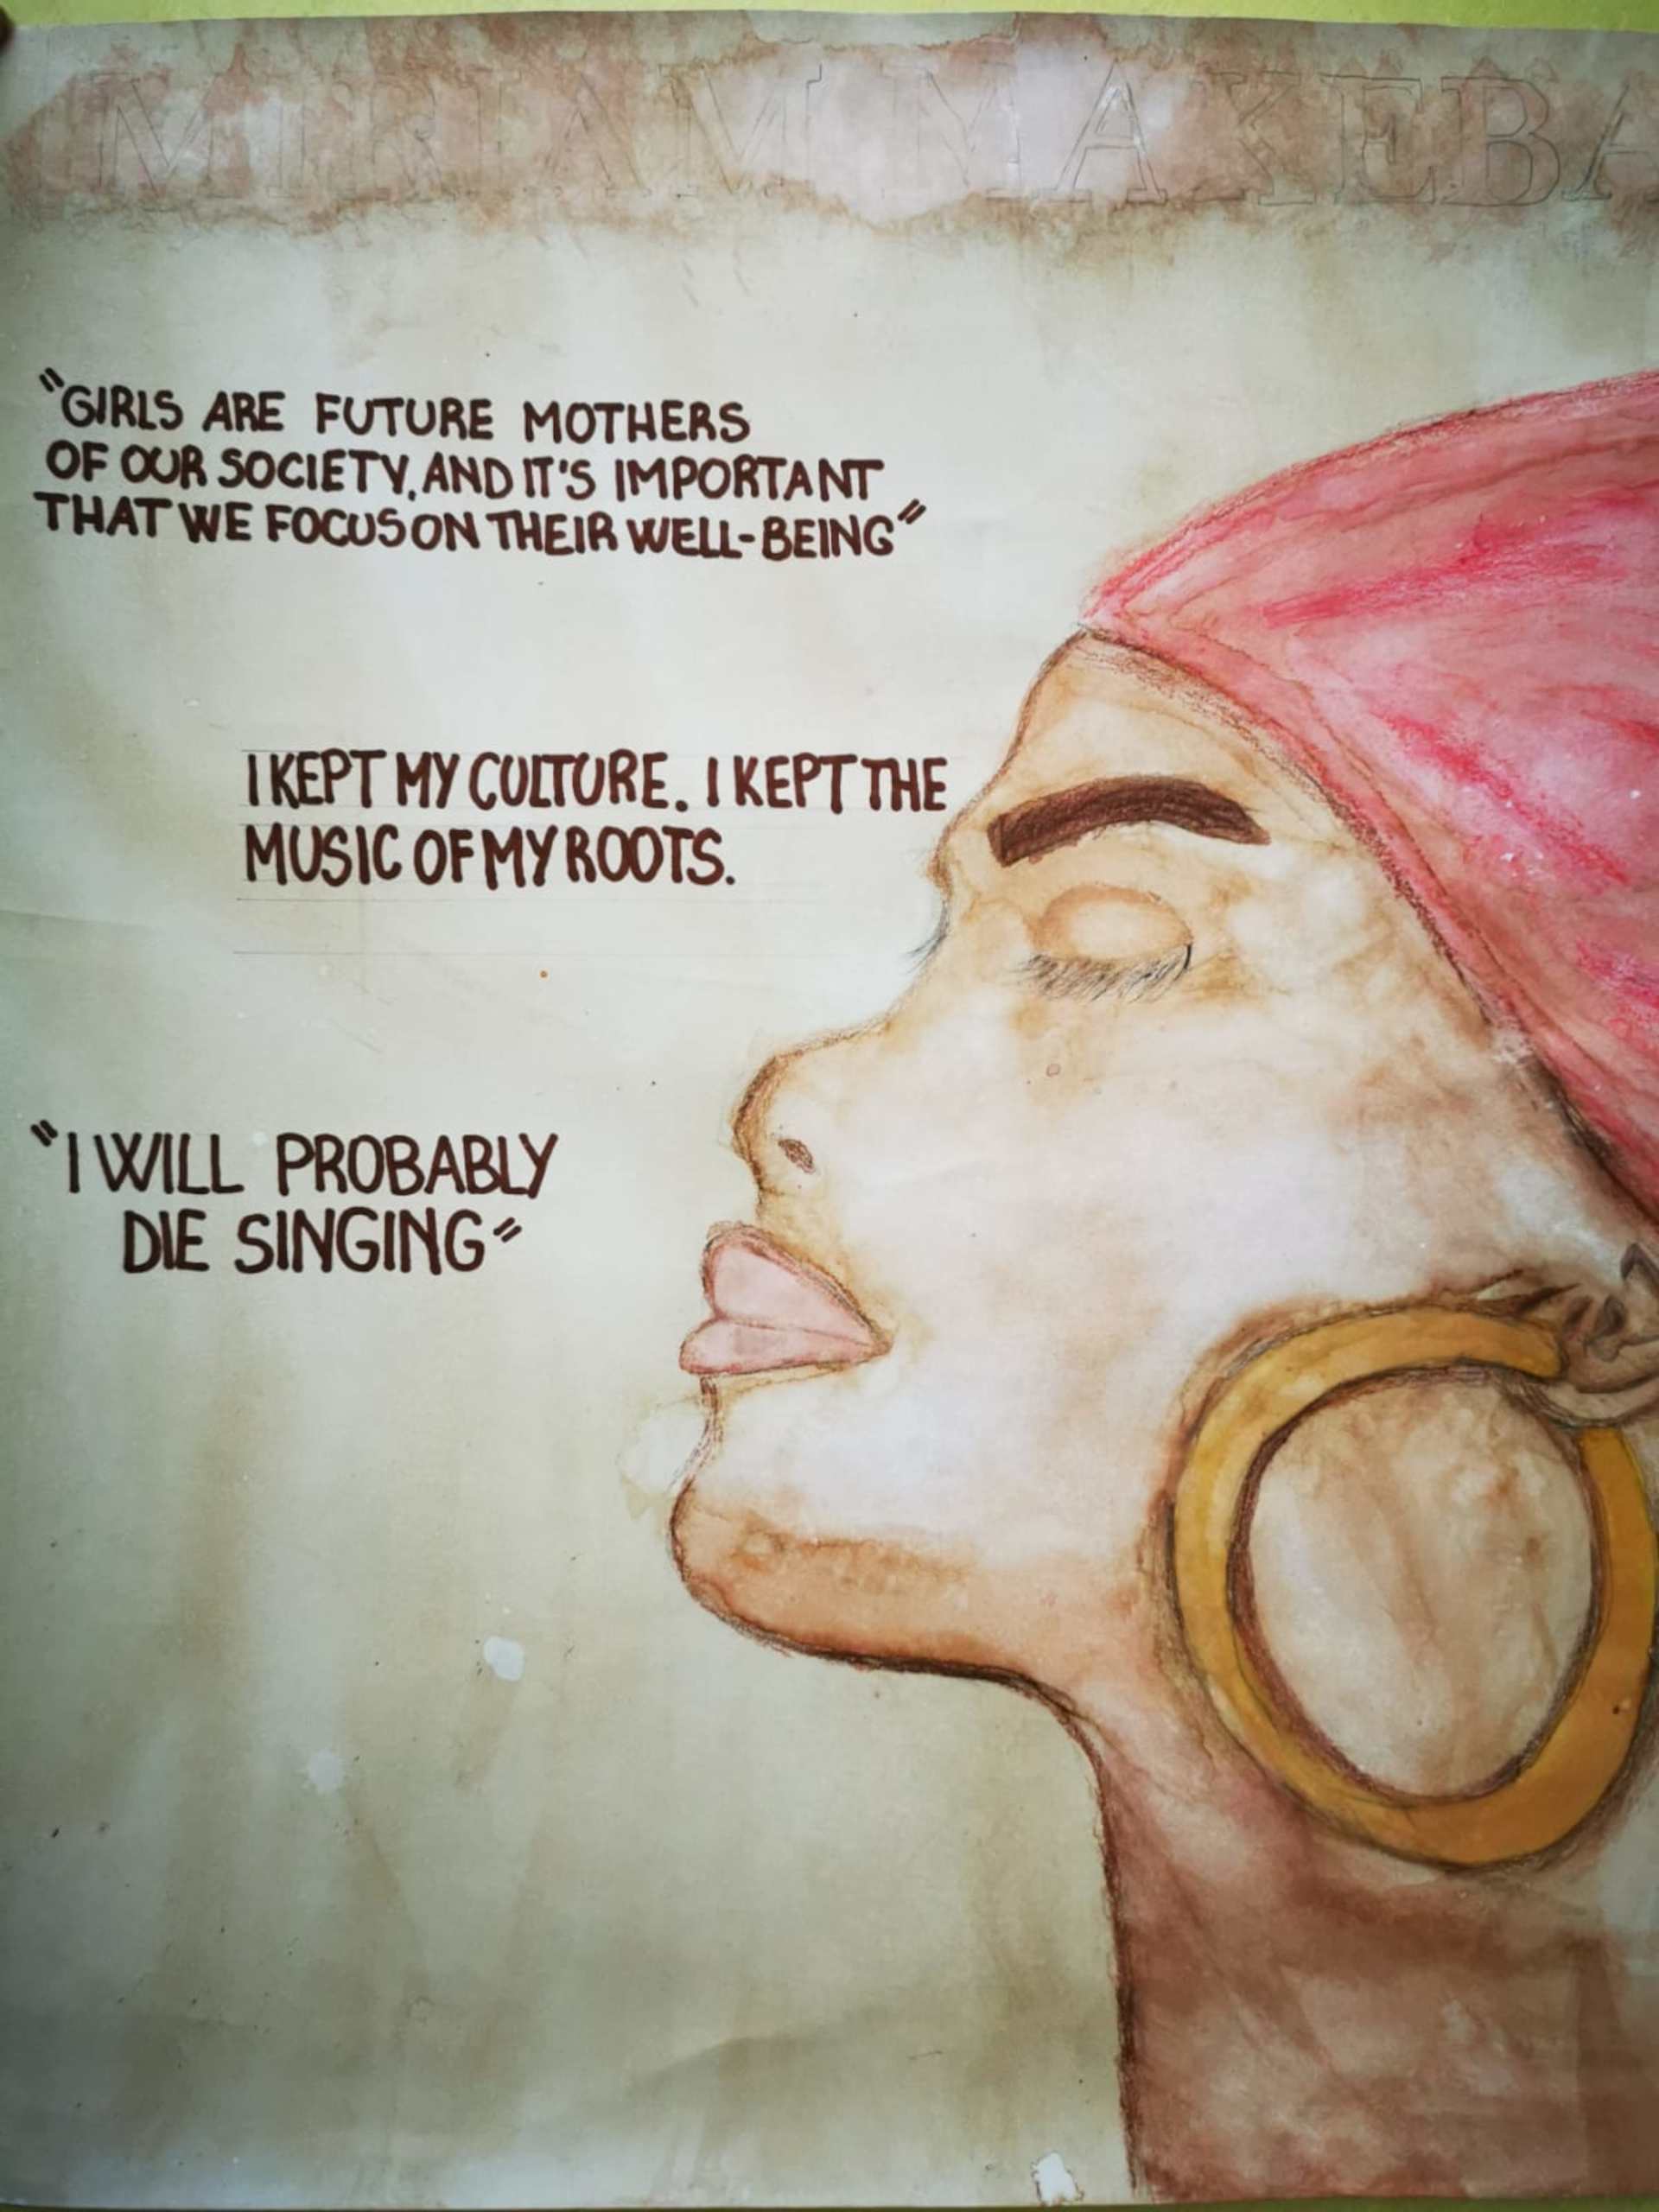 MIRIAM MAKEBA
"GIRLS ARE FUTURE MOTHERS
OF OUR SOCIETY, AND IT'S IMPORTANT
THAT WE FOCUS ON THEIR WELL-BEING"
I KEPT MY CULTURE. I KEPT THE
MUSIC OF MY ROOTS.
"I WILL PROBABLY
DIE SINGING"